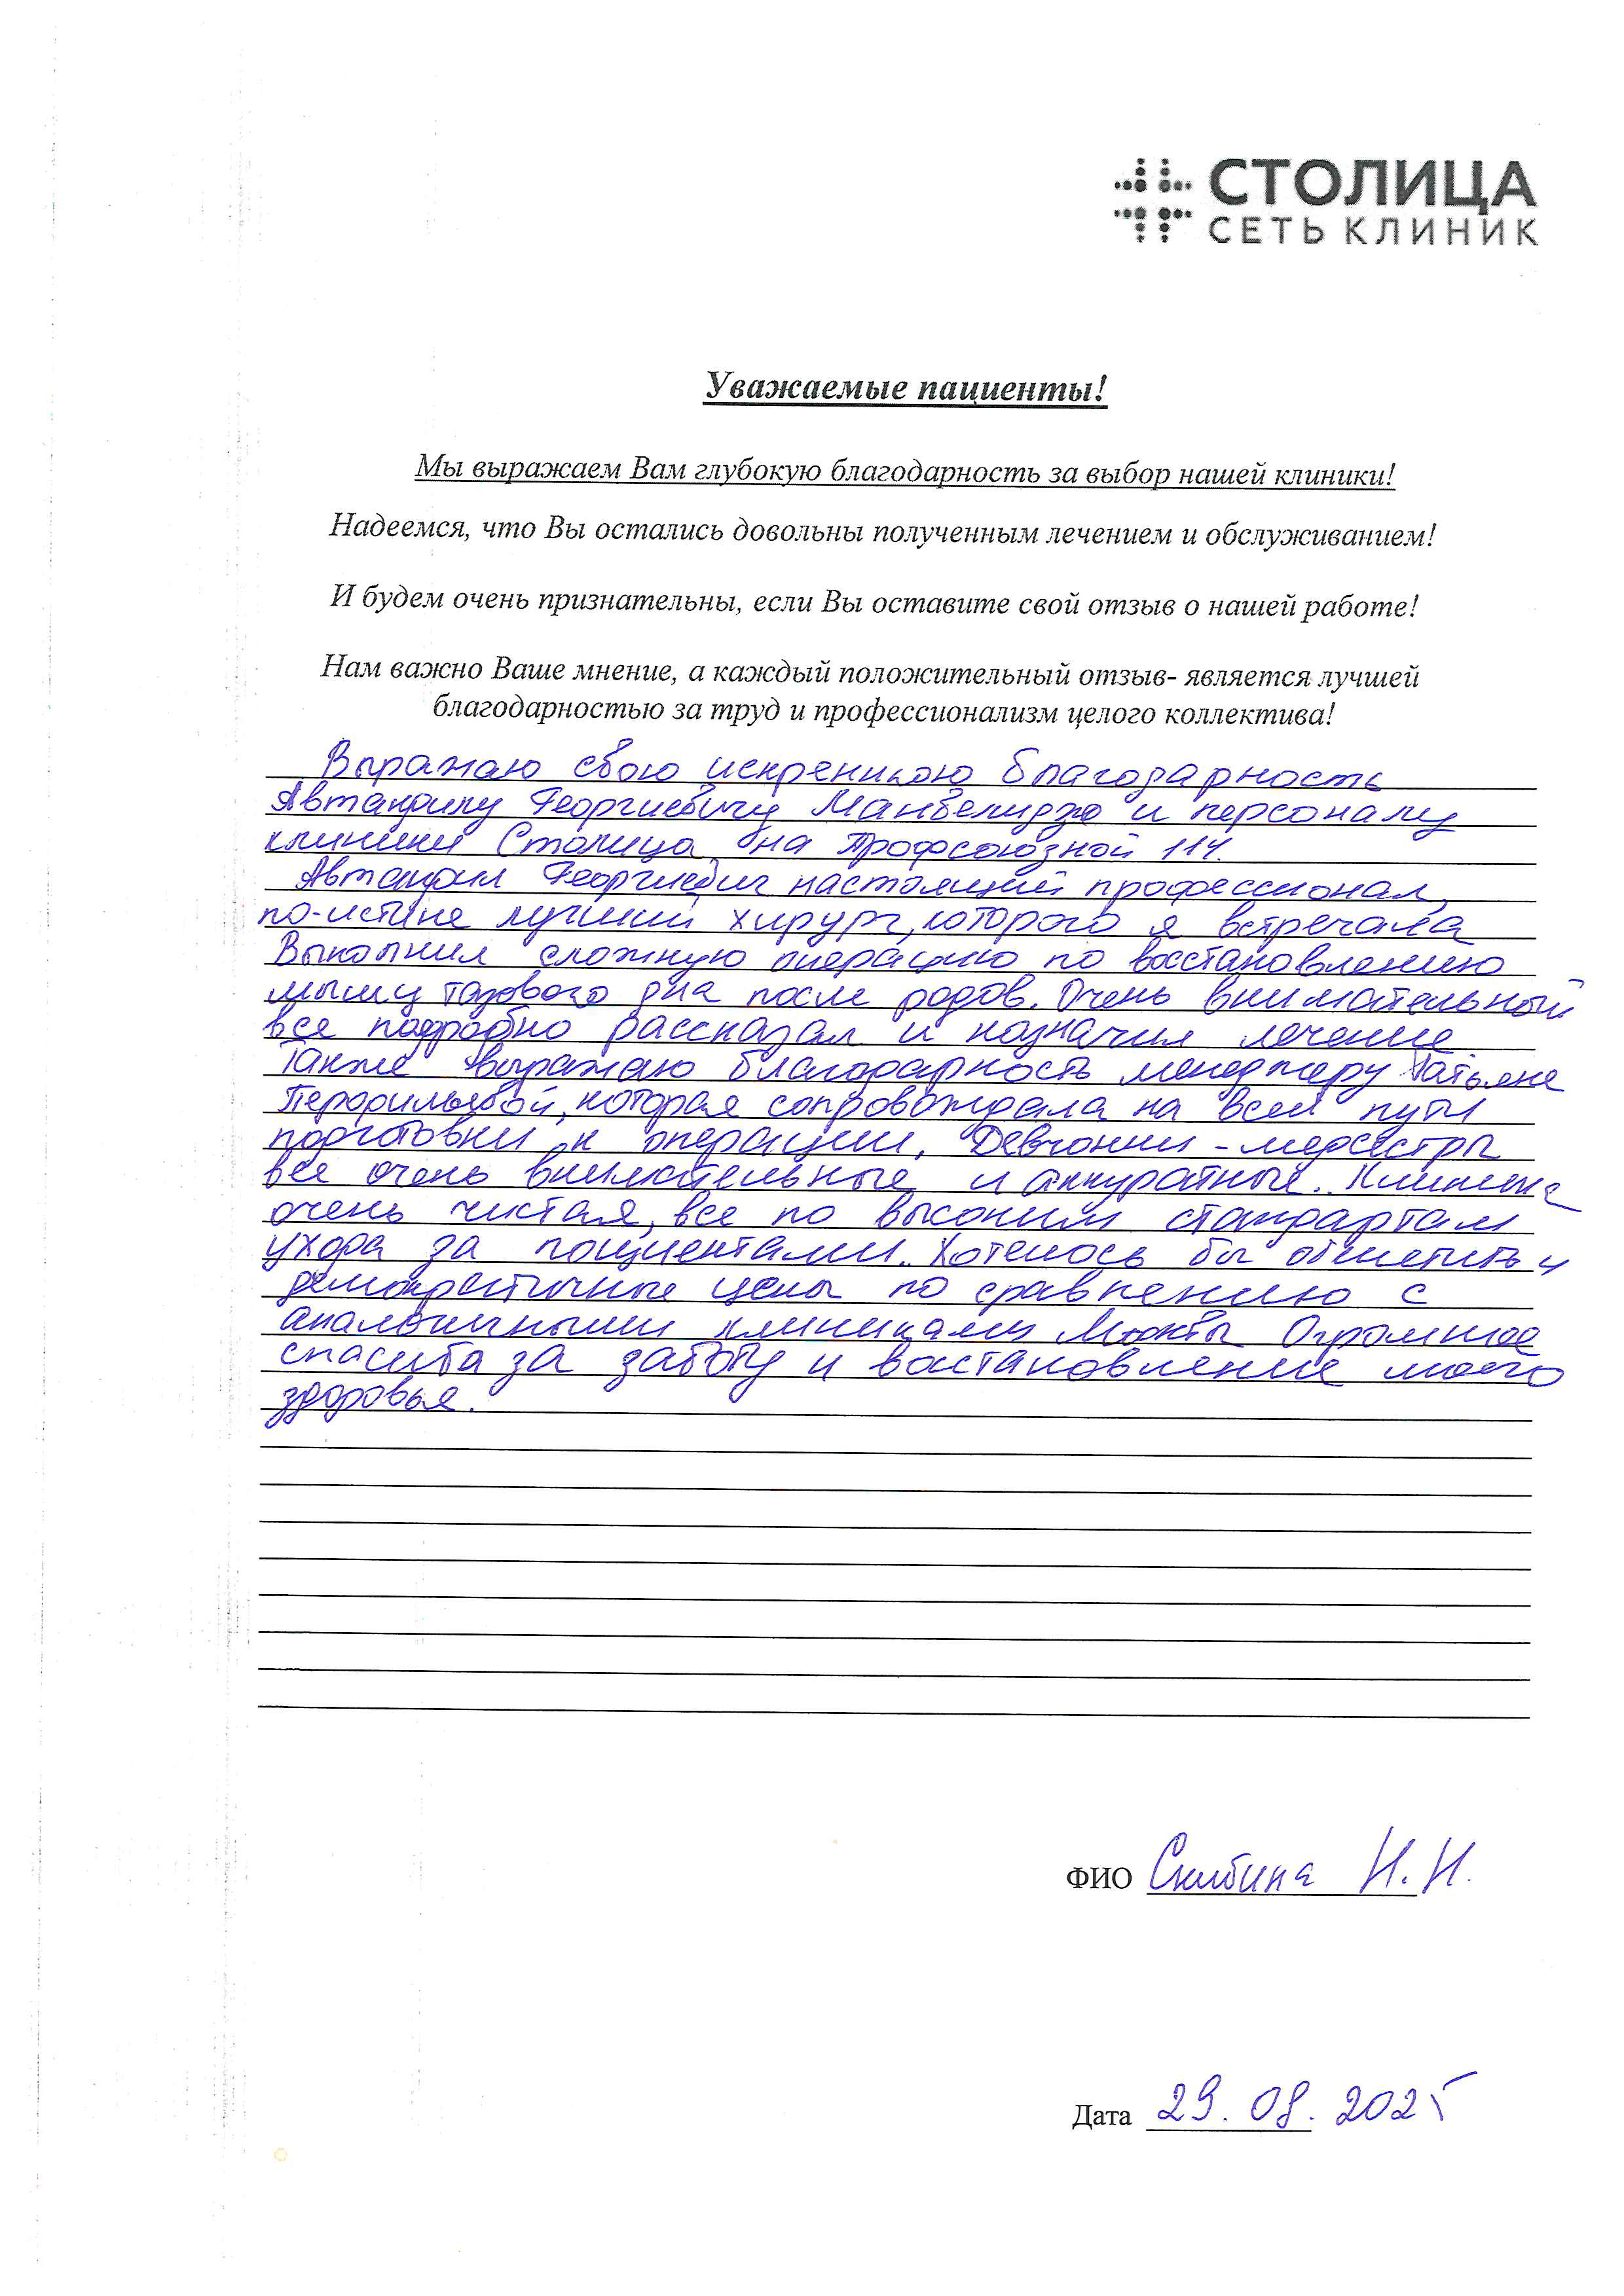 СТОЛИЦА
СЕТЬ КЛИНИК
Уважаемые пациенты!
Мы выражаем Вам глубокую благодарность за выбор нашей клиники!
Надеемся, что Вы остались довольны полученным лечением и обслуживанием!
И будем очень признательны, если Вы оставите свой отзыв о нашей работе!
Нам важно Ваше мнение, а каждый положительный отзыв- является лучшей
благодарностью за труд и профессионализм целого коллектива!
Выражаю свою искреннюю благодарность
Автандилу Георгиевичу Манвелидзе и персоналу
клиники Столица на Профсоюзной 114.
Автандил Георгиевич настоящий профессионал,
по-истине лучший хирург, которого я встречала
Выполнил сложную операцию по восстановлению
мышц тазового дна после родов. Очень внимательный
все подробно рассказал и назначил лечение
Также выражаю благодарность менеджеру Татьяне
которая сопровождала на всем пути
подготовки к операции. Девчонки - медсестры
все очень внимательные и аккуратные. Клиника
очень чистая, все по высоким стандартам
ухода за пациентами. Хотелось бы отметить и
демократичные цены по сравнению с
аналогичными клиниками Москвы Огромное
спасибо за заботу и востановление моего
здоровья.
ФИО Скибина Н.Н.
Дата 29.08.2025